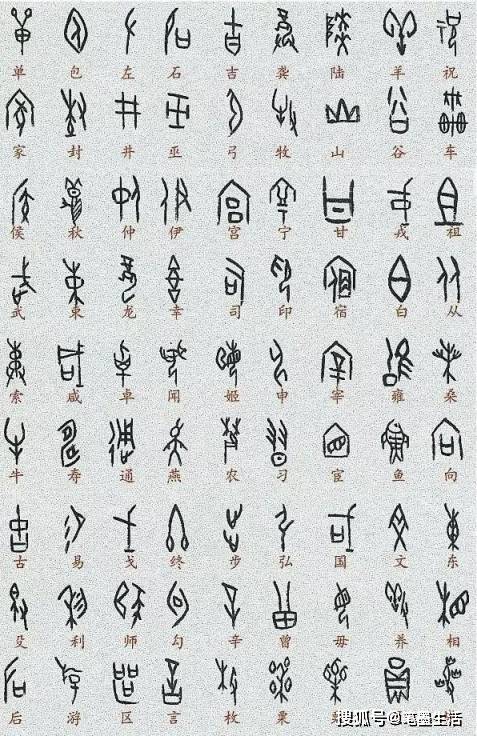 单 包 左 石 吉 龚 陆 羊 祝
家 封 井 巫 弓 牧 山 谷 车
侯 秋 仲 伊 宫 宁 甘 戎 祖
武 束 龙 幸 司 印 宿 白 从
索 咸 卓 闻 姬 申 宰 雍 桑
牛 寿 通 燕 农 习 宦 鱼 向
古 易 戈 终 步 弘 国 文 东
殳 利 师 勾 辛 曾 毋 养 相
后 游 区 言 枚 栗
搜狐号@笔墨生活